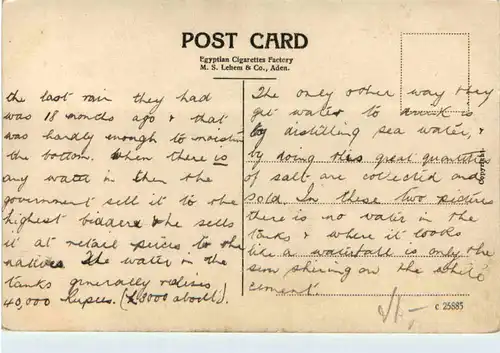 POST CARD
Egyptian Cigarettes Factory
M. S. Lehem & Co., Aden.
the last rain they had
was 18 months ago & that
was hardly enough to moisten
the bottom. When there is
any water in them the
government sell it to the
highest bidder & he sells
it at retail prices to the
natives. The water in the
tanks generally realises
40,000 Rupees. (£3000 about).
The only other way they
get water to drink is
by distilling sea water, &
by doing this great quantities
of salt are collected and
sold. In these two pictures
there is no water in the
tanks & where it looks
like a waterfall is only the
sun shining on the white
cement.
Copyright
c 25885